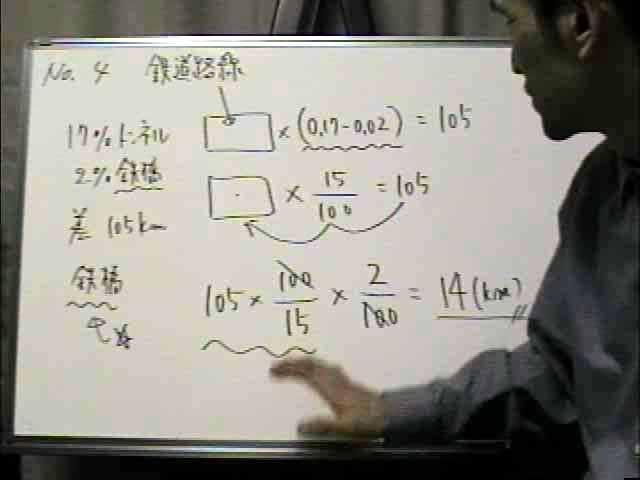 No. 4 鉄道路線
17%トンネル
2%鉄橋
差 105km
鉄橋
□ × (0.17-0.02) = 105
□ × 15/100 = 105
105 × 100/15 × 2/100 = 14 (km)